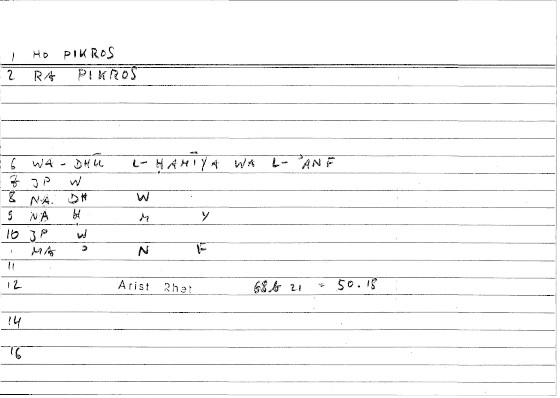 1 HO PIKROS
2 RA PIKROS
6 WA - DHŪ L- ḤAMĪYA WA L- ʾANF
7 JP W
8 NA. DH W
9 NA Ḥ M Y
10 JP W
. MA ʾ N F
11
12 Arist Rhet 68b 21 = 50.18
14
16